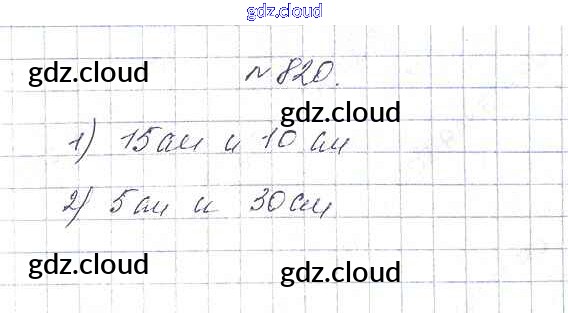 gdz.cloud
gdz.cloud
№ 820.
gdz.cloud
1) 15 см и 10 см
2) 5 см и 30 см
gdz.cloud
gdz.cloud